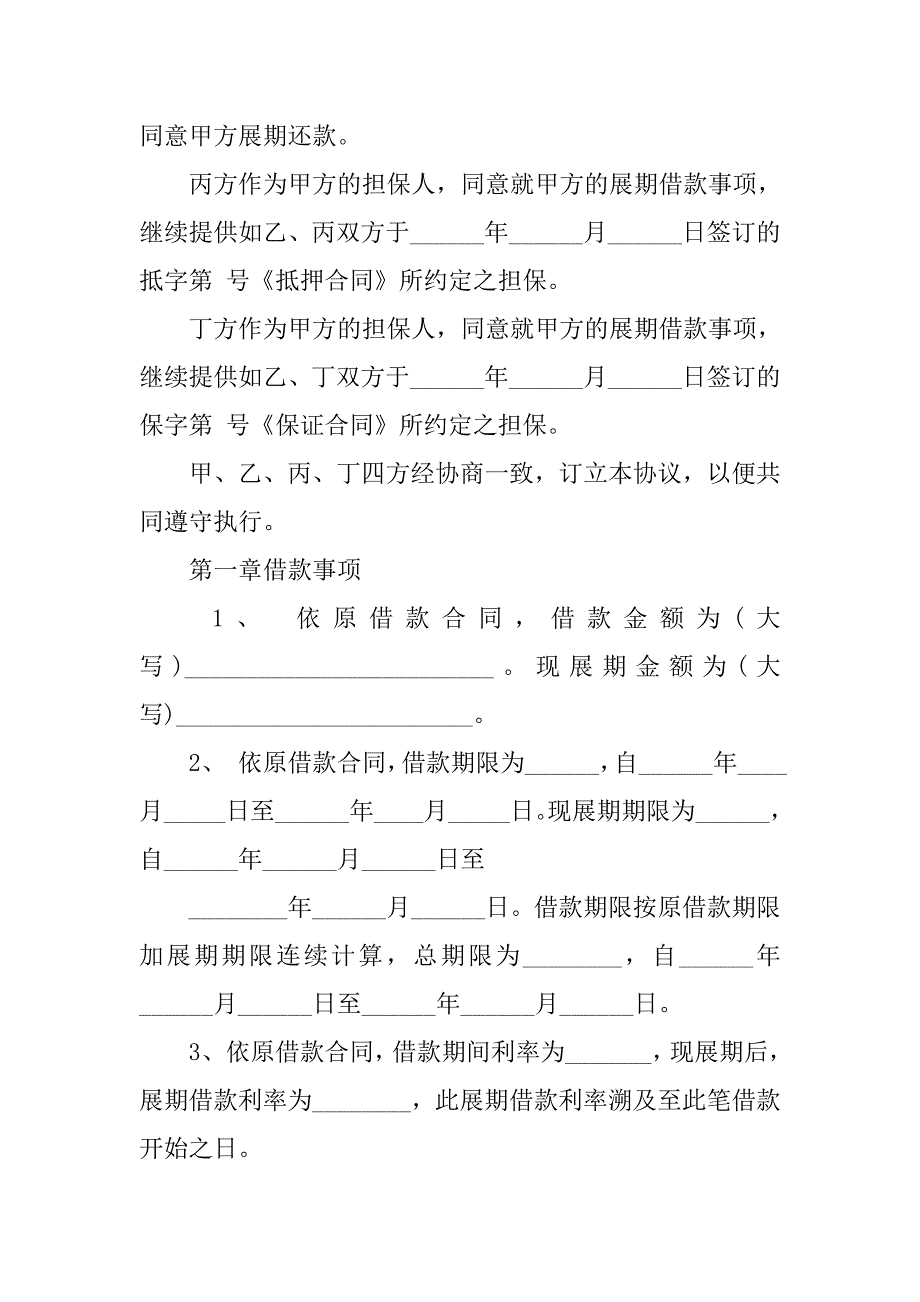 同意甲方展期还款。
丙方作为甲方的担保人，同意就甲方的展期借款事项，
继续提供如乙、丙双方于______年______月______日签订的
抵字第 号《抵押合同》所约定之担保。
丁方作为甲方的担保人，同意就甲方的展期借款事项，
继续提供如乙、丁双方于______年______月______日签订的
保字第 号《保证合同》所约定之担保。
甲、乙、丙、丁四方经协商一致，订立本协议，以便共
同遵守执行。
第一章借款事项
1、 依原借款合同，借款金额为(大
写)_________________________。现展期金额为(大
写)________________________。
2、 依原借款合同，借款期限为______，自______年____
月_____日至______年____月_____日。现展期期限为______，
自______年______月______日至
________年______月______日。借款期限按原借款期限
加展期期限连续计算，总期限为________，自______年
______月______日至______年______月______日。
3、依原借款合同，借款期间利率为_______，现展期后，
展期借款利率为________，此展期借款利率溯及至此笔借款
开始之日。